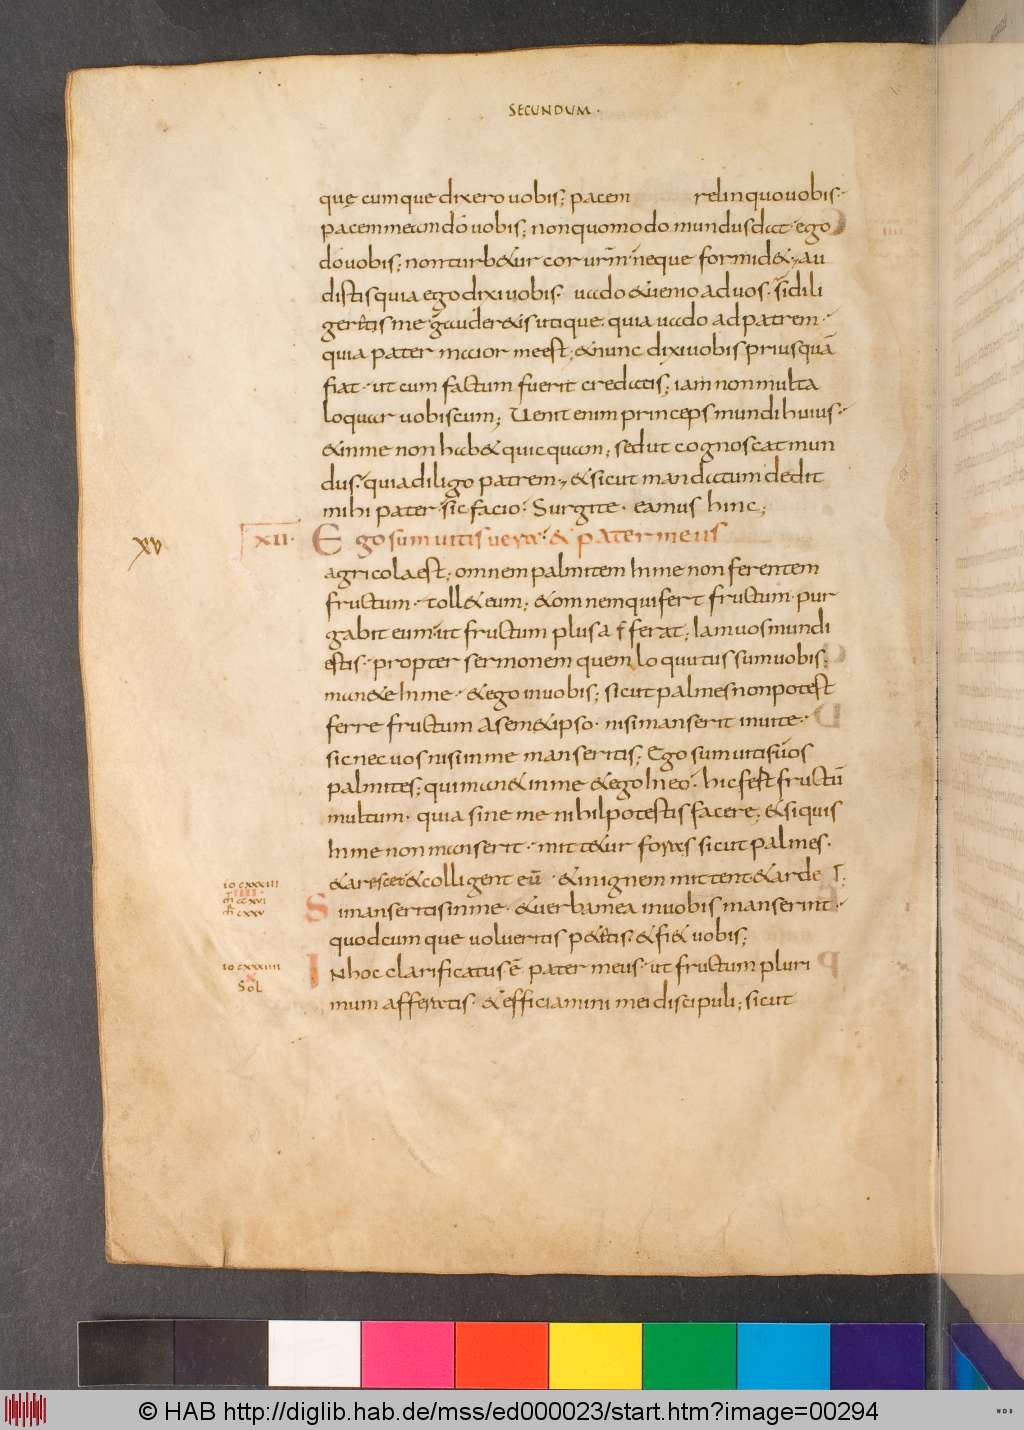 SECUNDUM ·
quę cumque dixero uobis; pacem relinquo uobis·
pacem meam dō uobis; non quomodo mundus dat· ego
dō uobis; non turb&ur cor urm̄ neque formid&; au
distis quia ego dixi uobis· uado &uenio ad uos· si dili
ger&is me gauder&is utique· quia uado ad patrem·
quia pater maior me est; &nunc dixi uobis priusquā
fiat· ut cum factum fuerit credatis; iam non multa
loquar uobiscum; Uenit enim princeps mundi huius·
&in me non hab& quicquam; sed ut cognoscat mun
dus· quia diligo patrem· &sicut mandatum dedit
mihi pater· sic facio· Surgite· eamus hinc;
xv
XII· Ego sum uitis uera· & pater meus
agricola est; omnem palmitem In me non ferentem
fructum· toll& eum; &omnem qui fert fructum· pur
gabit eum· ut fructum plus afferat; Iam uos mundi
estis· propter sermonem quem locutus sum uobis;
man&e In me· &ego in uobis; sicut palmes non potest
ferre fructum a sem&ipso· nisi manserit in uite·
sic nec uos nisi in me manseritis; Ego sum uitis· uos
palmites; qui man& in me &ego In eo· hic fert fructū
multum· quia sine me nihil potestis facere; &si quis
In me non manserit· mitt&ur foras sicut palmes·
&arescet &colligent eū· &in ignem mittent &arde T;
io cxxxiii
IIII
m̄ ccxvi
m̄ cxxv
Si manseritis in me· &uerba mea in uobis manserint·
quodcumque uolueritis p&&is· &fi& uobis;
io cxxxiiii
X
Sol
IN hoc clarificatus ē pater meus· ut fructum pluri
mum afferatis· &efficiamini mei discipuli; sicut
© HAB http://diglib.hab.de/mss/ed000023/start.htm?image=00294